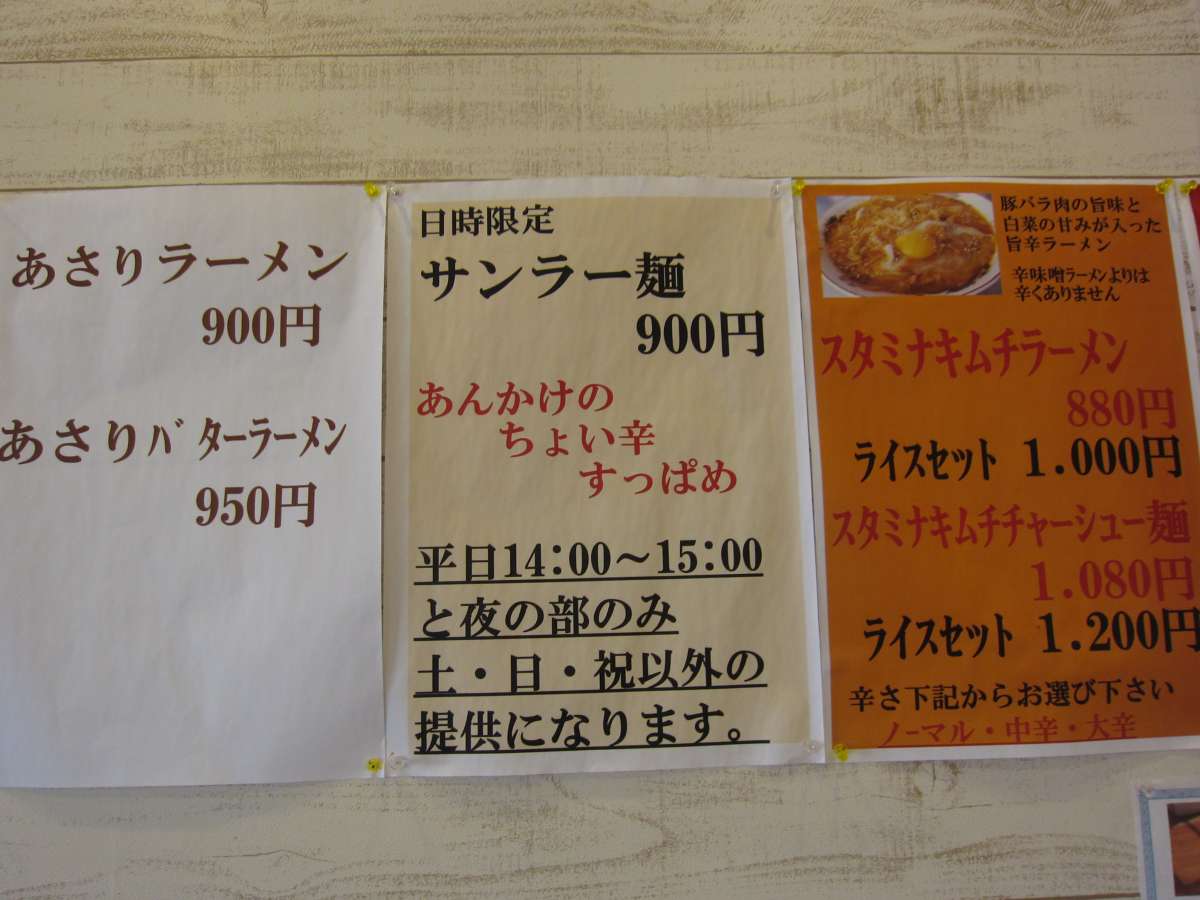 あさりラーメン
900円
あさりバターラーメン
950円
日時限定
サンラー麺
900円
あんかけの
ちょい辛
すっぱめ
平日14:00〜15:00
と夜の部のみ
土・日・祝以外の
提供になります。
豚バラ肉の旨味と
白菜の甘みが入った
旨辛ラーメン
辛味噌ラーメンよりは
辛くありません
スタミナキムチラーメン
880円
ライスセット 1.000円
スタミナキムチチャーシュー麺
1.080円
ライスセット 1.200円
辛さ下記からお選び下さい
ノーマル・中辛・大辛